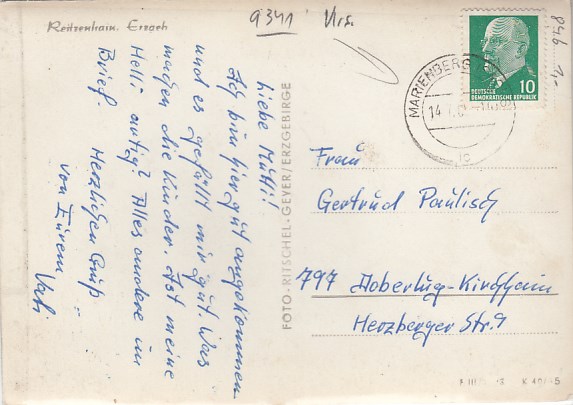 Reitzenhain. Erzgeb
9341
Liebe Mutti!
Ich bin hier gut angekommen
und es gefällt mir gut Was
machen die Kinder. Ist meine
Helli artig? Alles andere im
Brief
Herzlichen Gruß
von Eurem
Vati
FOTO-RITSCHEL-GEYER/ERZGEBIRGE
MARIENBERG
14
DEUTSCHE
DEMOKRATISCHE REPUBLIK
10
Frau
Gertrud Paulisch
797 Doberlug-Kirchhain
Herzberger Str. 9